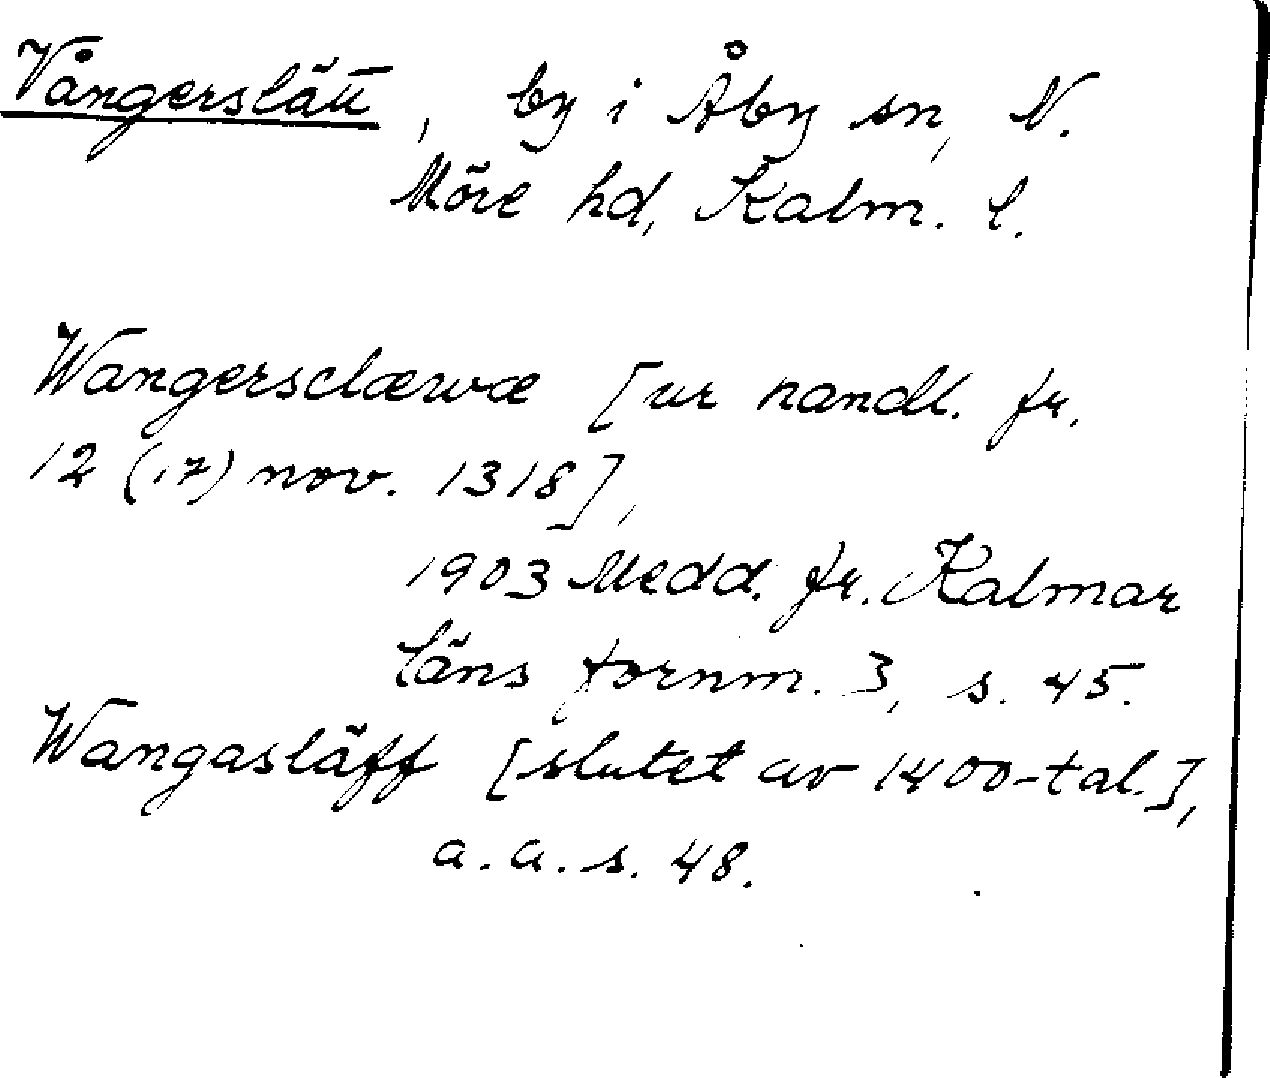 Vångerslätt, by i Åby sn, N.
Möre hd, Kalm. l.
Wangersclæwæ [ur handl. fr.
12 (17) nov. 1318],
1903 Medd. fr. Kalmar
läns fornm. 3, s. 45.
Wangasläff [slutet av 1400-tal.],
a. a. s. 48.